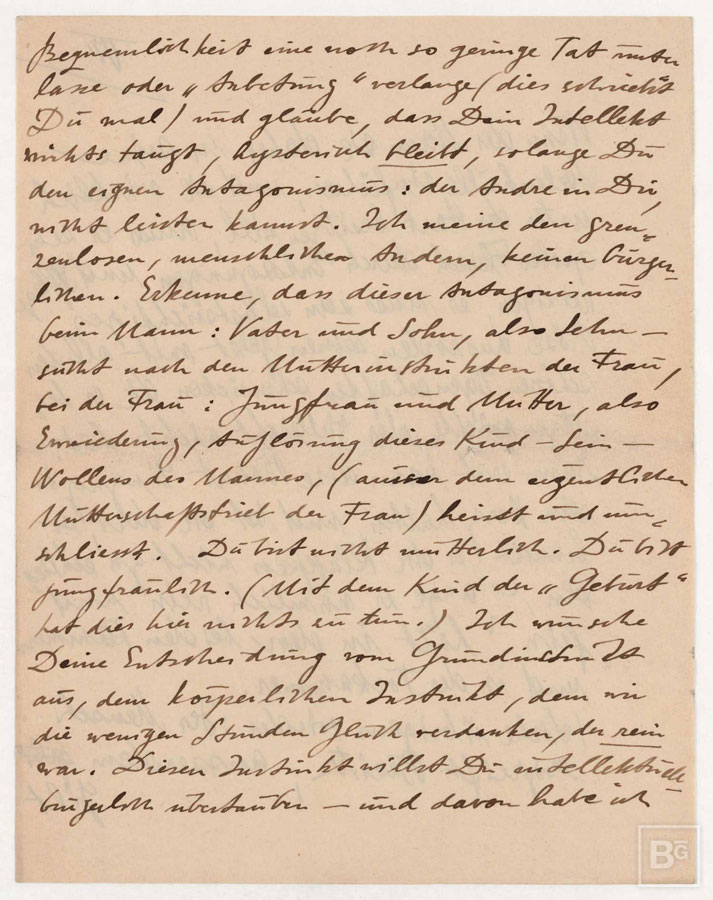 Bequemlichkeit eine noch so geringe Tat unter
lasse oder „Anbetung“ verlange (dies schriebst
Du mal) und glaube, dass Dein Intellekt
nichts taugt, hysterisch bleibt, solange Du
den eignen Antagonismus: der Andre in Dir,
nicht leisten kannst. Ich meine den gren-
zenlosen, menschlichen Andern, keinen bürger-
lichen. Erkenne, dass dieser Antagonismus
beim Mann: Vater und Sohn, also Sehn-
sucht nach den Mutterinstinkten der Frau,
bei der Frau: Jungfrau und Mutter, also
Erwiederung, Auflösung dieses Kind-Sein-
Wollens des Mannes, (ausser dem eigentlichen
Mutterschaftstrieb der Frau) heisst und um-
schliesst. Du bist nicht mutterlich. Du bist
jungfraulich. (Mit dem Kind der „Geburt“
hat dies hier nichts zu tun.) Ich wünsche
Deine Entscheidung vom Grundinstinkt
aus, dem körperlichen Instinkt, dem wir
die wenigen Stunden Glück verdanken, der rein
war. Diesen Instinkt willst Du intellektuell
bürgerlich übertäuben — und davon habe ich
BG